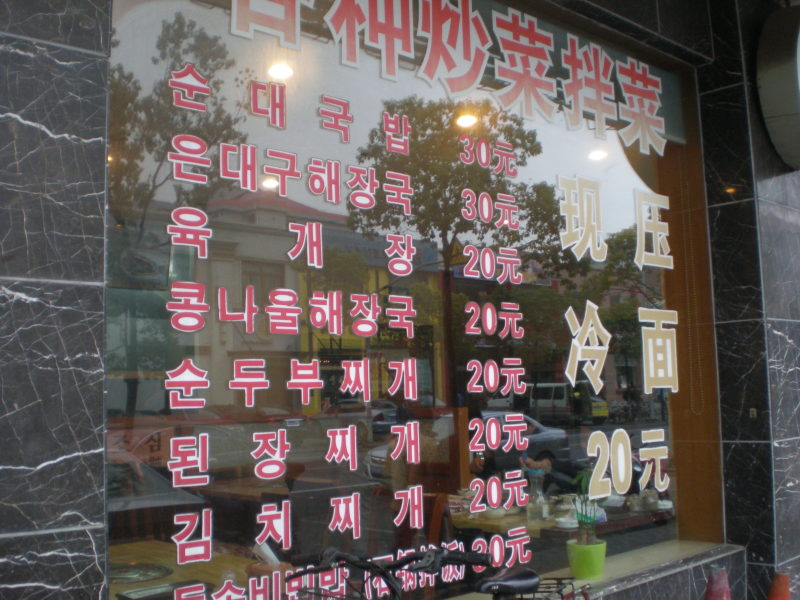 各种炒菜拌菜
순대국밥 30元
은대구해장국 30元
육개장 20元
콩나울해장국 20元
순두부찌개 20元
된장찌개 20元
김치찌개 20元
돌솥비빔밥 (石锅拌饭) 30元
现压
冷面
20元